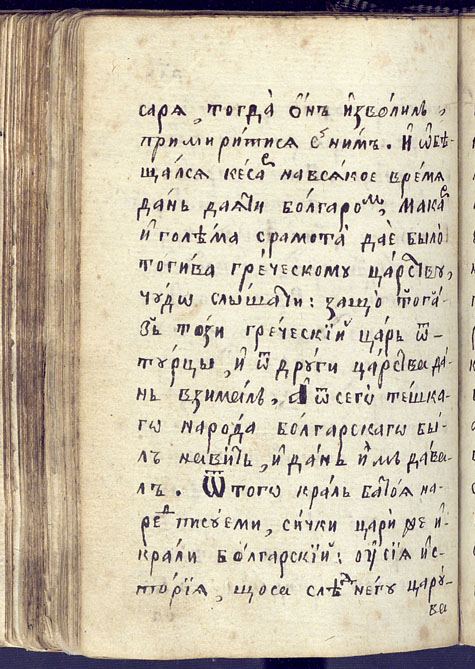 саря, тогда̀ о́нъ изво́лилъ,
примири́тися с̾ ни́мъ. И ѡ҆бѣ-
ща́лся ке́саⷬ҇ нався́кое вре́мя
да́нь дая́ти бо́лгароⷨ, макаⷬ҇
и҆ голѣ́ма срамота̀ дае было̀
тоги́ва гре́ческому ца́рству,
чу́дѡ слы́шати: защо̀ тога́-
въ то́зи гре́ческїй ца́рь ѿ-
ту́рцы, и ѿ дру́ги ца́рства да́-
нь взима́лъ, а҆ ѿ сего̀ те́шка-
гѡ наро́да бо́лгарскагѡ бы́-
лъ неви́тъ, и҆ да́нь и҆́мъ дава-
лъ. Ѿ того крало батоя на-
реⷣ писуеми, си́чки царѝ ꙗ҆е и҆-
крали бо́лгарскїй: ѹ҆ сїя и҆с-
то́рїя, щоса слѣⷣ не́гу цару́-
ва